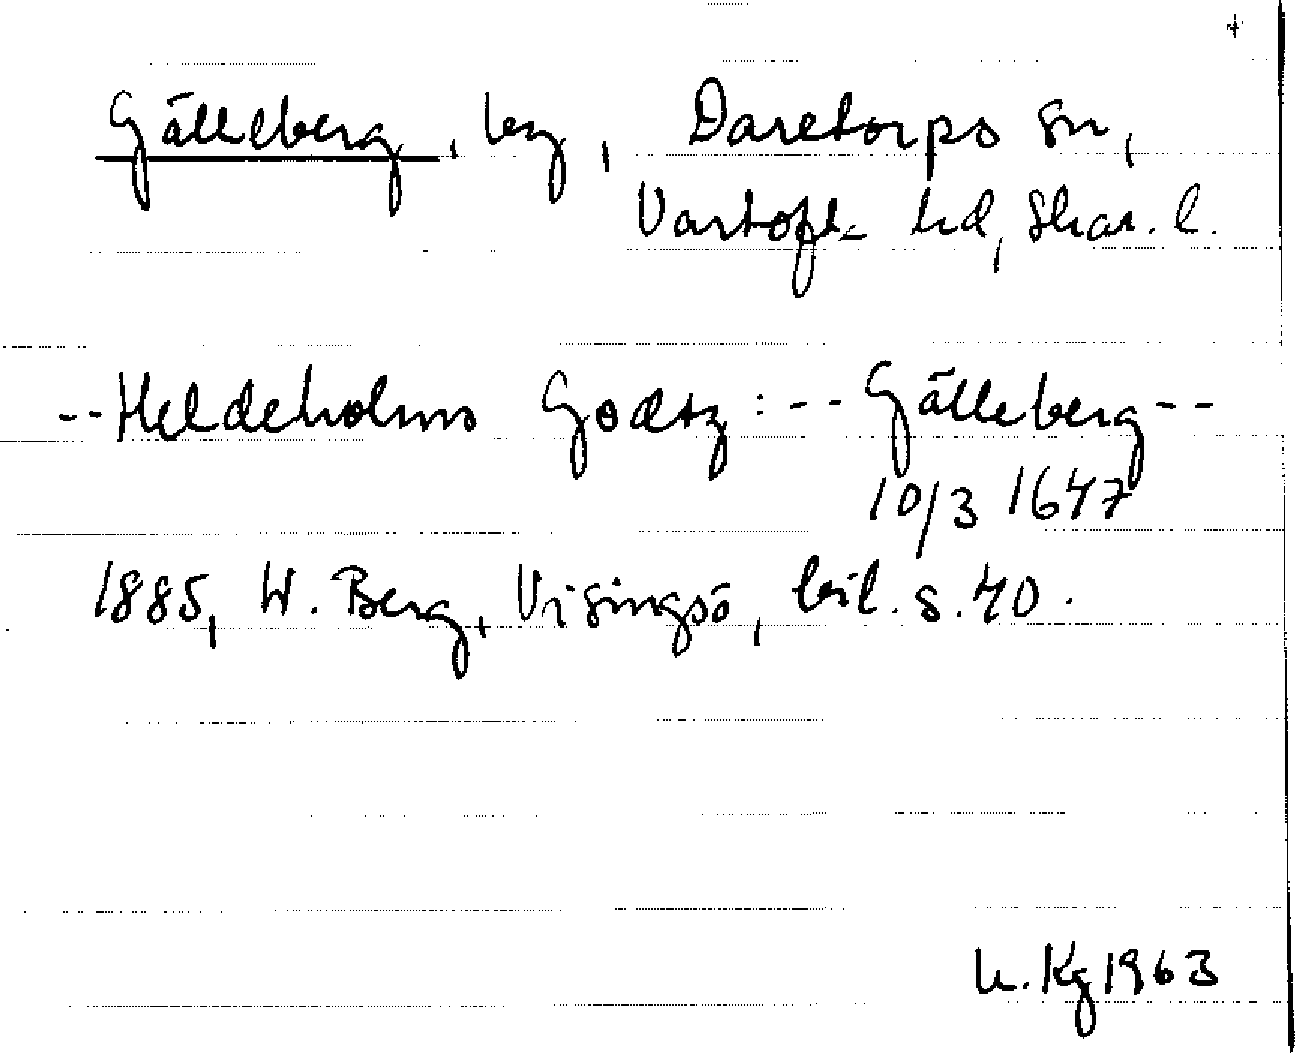 +
Gälleberg, by, Daretorps sn,
Vartofta hd, Skar. l.
--Heldeholms Godtz: -- Gälleberg--
10/3 1647
1885, W. Berg, Visingsö, bil. s. 40.
K. Kg 1963